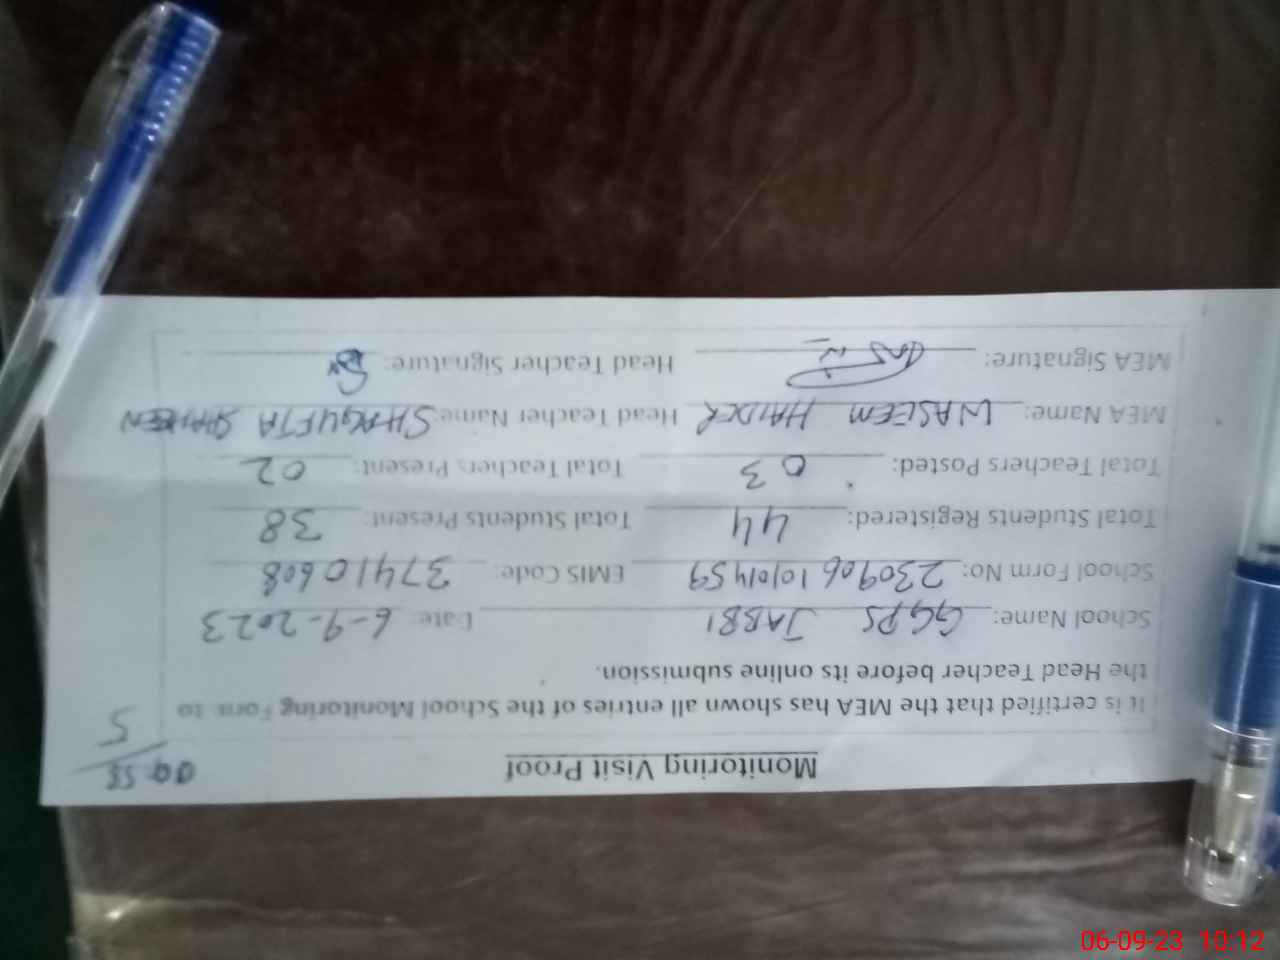 Monitoring Visit Proof
09-58
5
It is certified that the MEA has shown all entries of the School Monitoring Form to
the Head Teacher before its online submission.
School Name: GGPS JABBI Date: 6-9-2023
School Form No: 23090610101459 EMIS Code: 37410608
Total Students Registered: 44 Total Students Present: 38
Total Teachers Posted: 03 Total Teachers Present: 02
MEA Name: WASEEM HAIDER Head Teacher Name: SHAGUFTA SHAHEEN
MEA Signature: Head Teacher Signature:
06-09-23 10:12